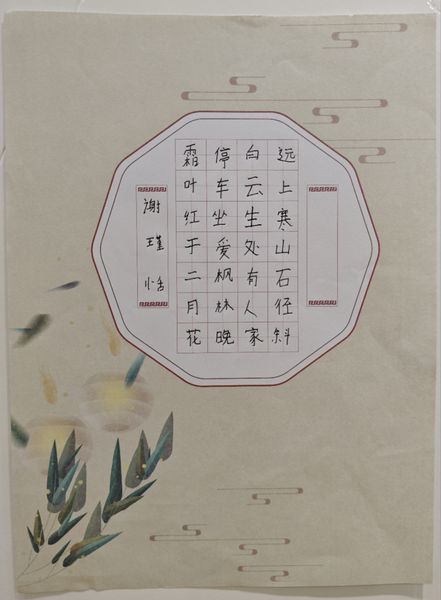 远上寒山石径斜
白云生处有人家
停车坐爱枫林晚
霜叶红于二月花
谢瑾恬